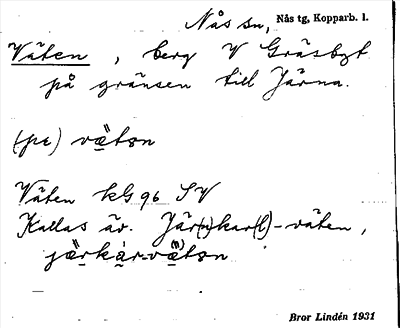 Nås sn, Nås tg, Kopparb. l.
Väten, berg V Gräsbgt
på gränsen till Järna.
(pe) vätən
Väten kG 96 SV
Kallas äv. Jär(n)kar(l)-väten,
järkàr-vä̀tən
Bror Lindén 1931